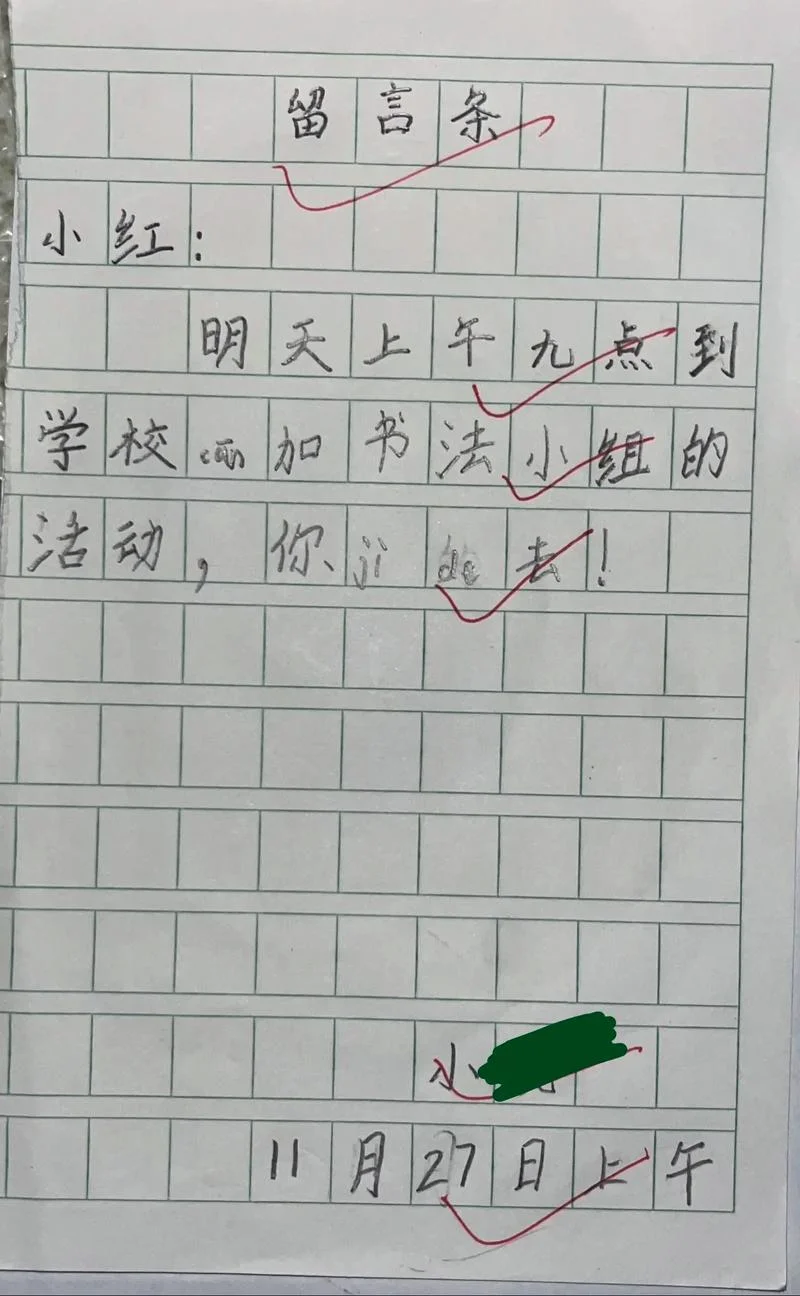 留言条
小红：
明天上午九点到
学校can加书法小组的
活动，你ji de去！
小
11月27日上午